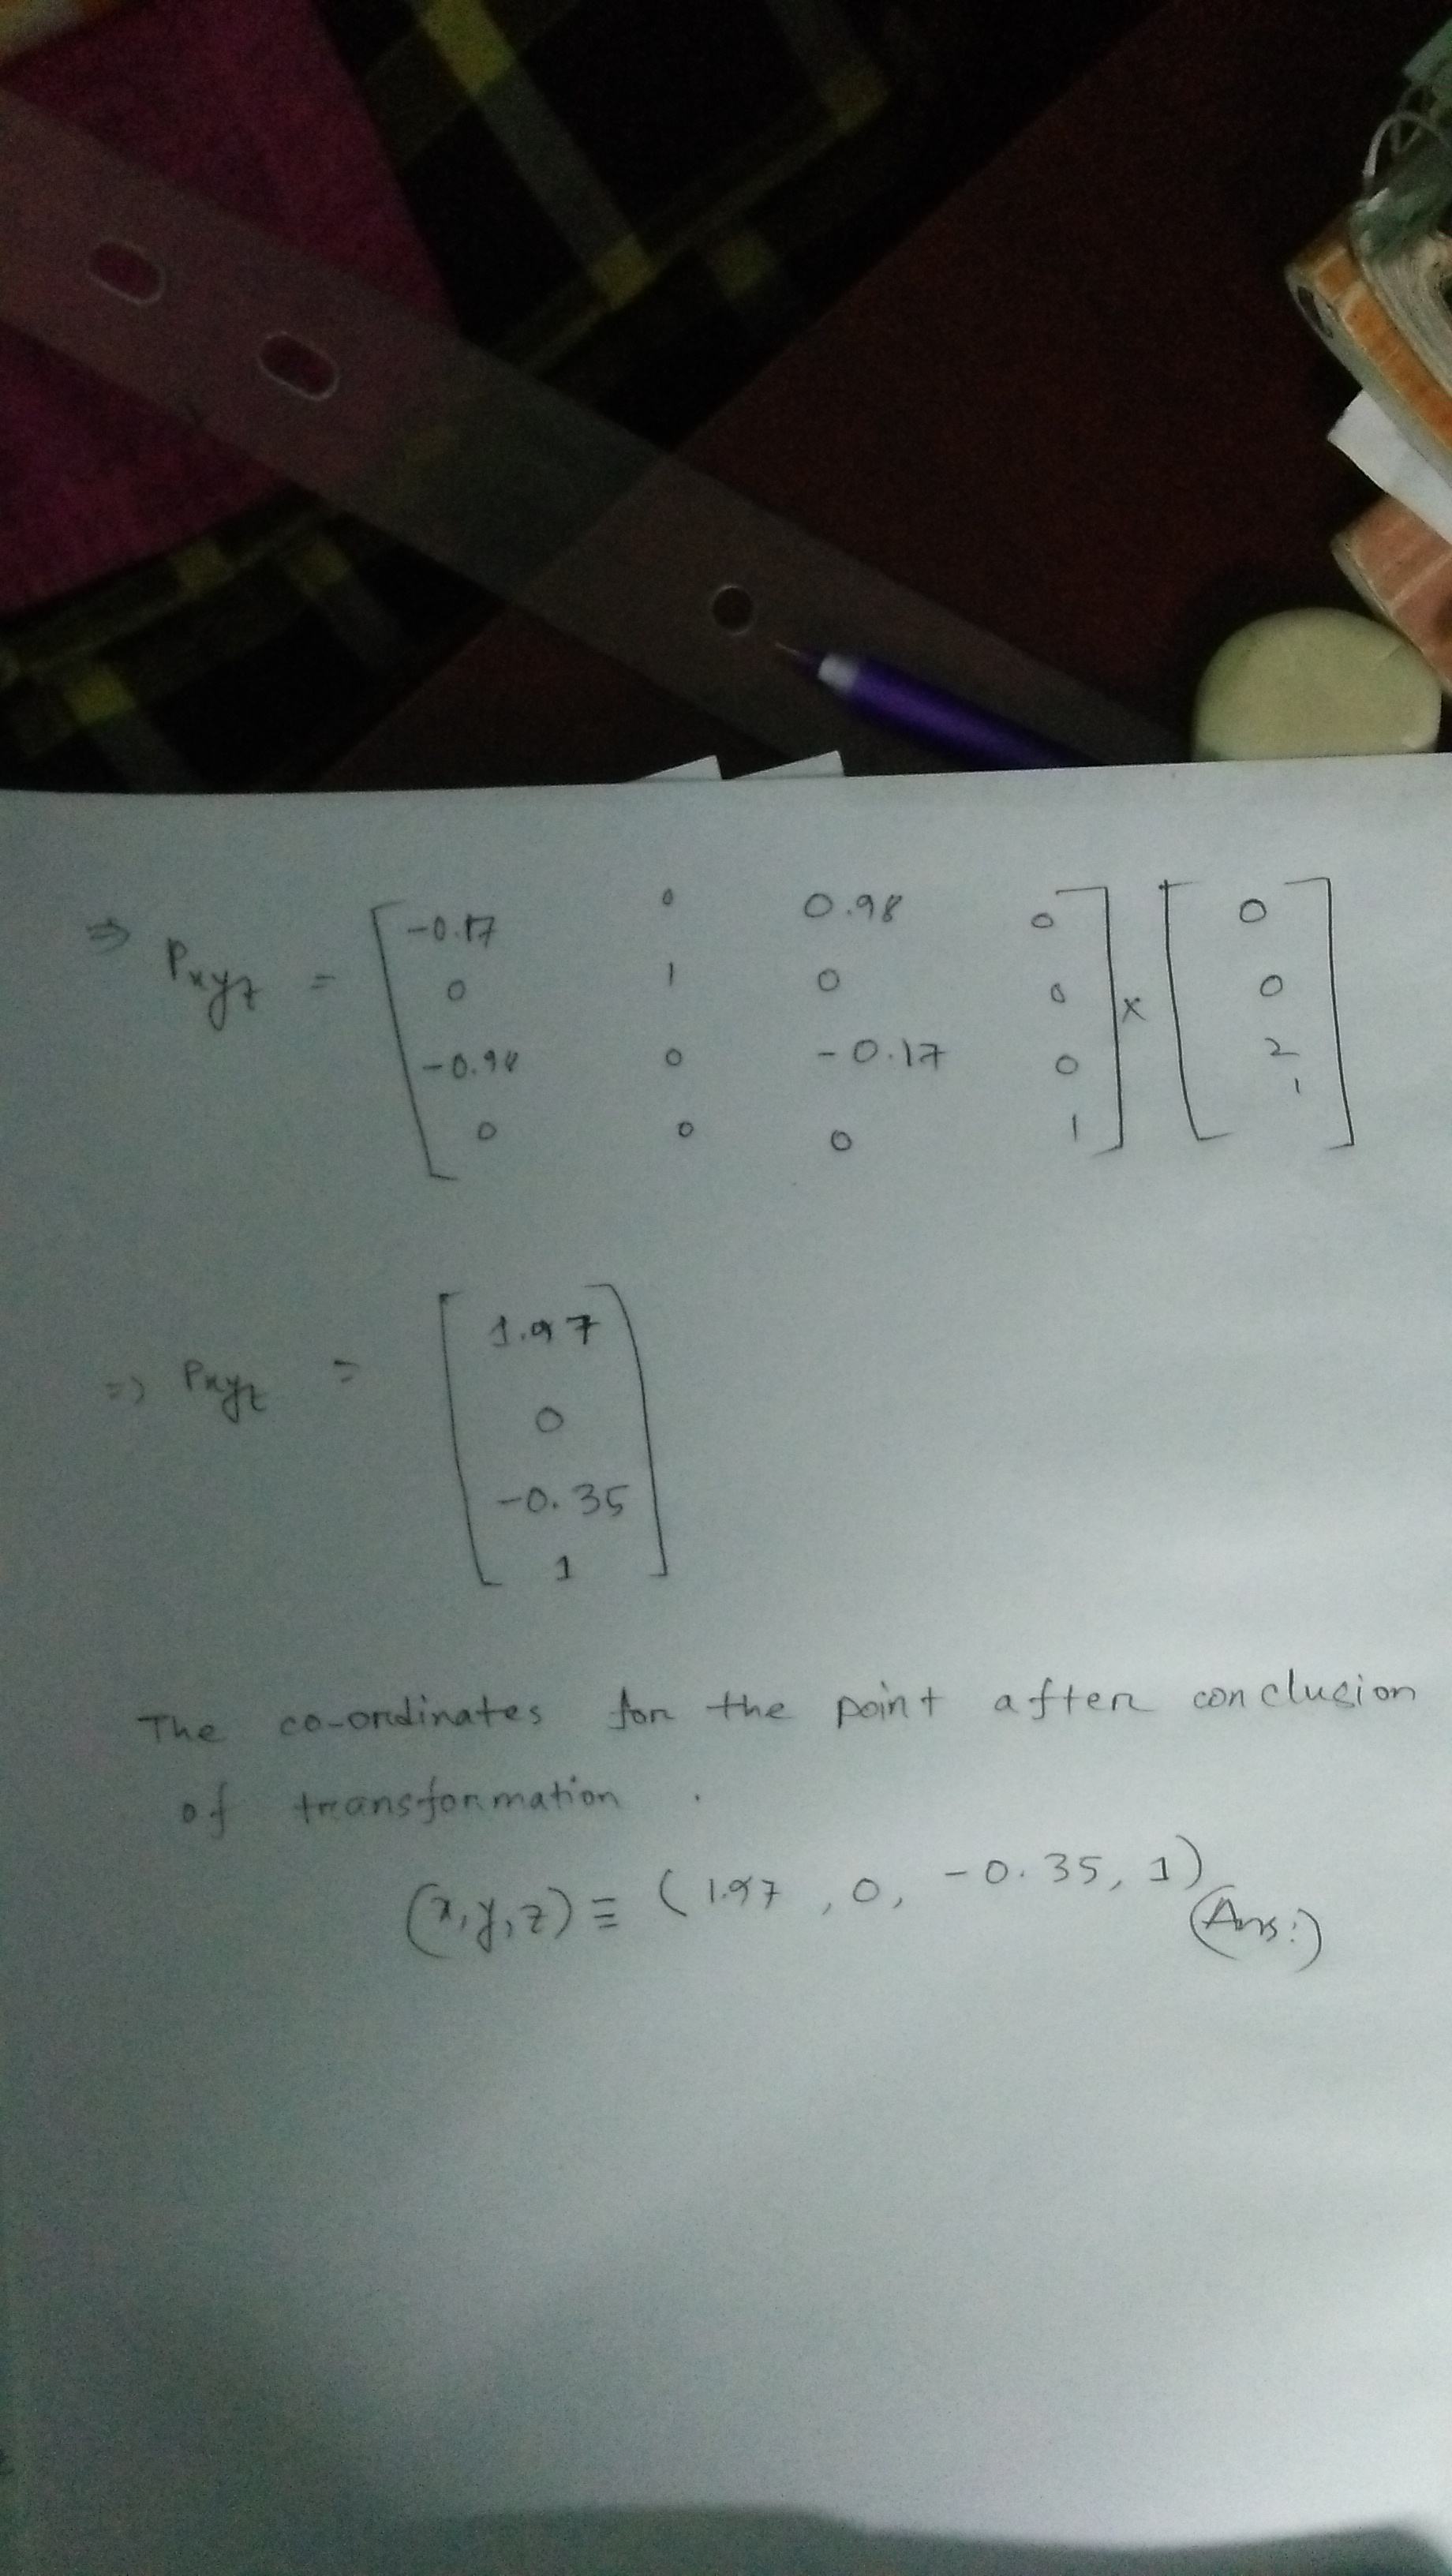 ⇒ Pxyz = [ -0.17 0 0.98 0 ] × [ 0 ]
0 1 0 0 0
-0.98 0 -0.17 0 2
0 0 0 1 1
⇒ Pxyz = [ 1.97 ]
0
-0.35
1
The co-ordinates for the point after conclusion
of transformation .
(x,y,z) ≡ (1.97 , 0, -0.35, 1)
(Ans:)